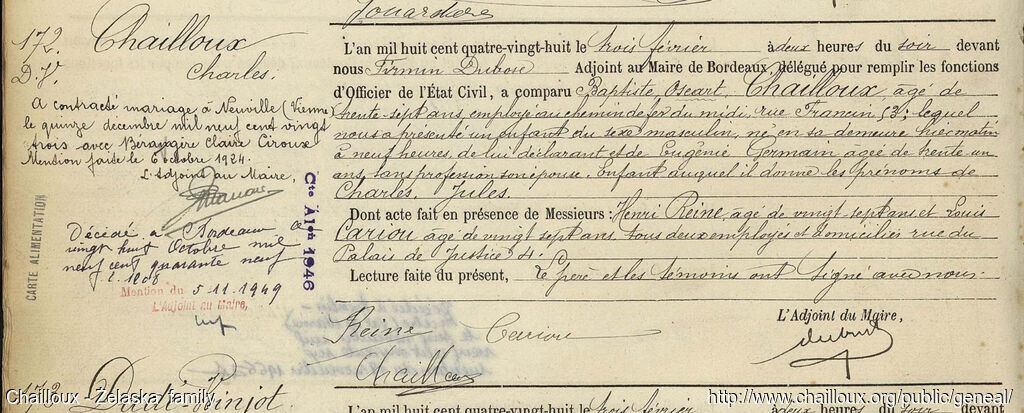 172.
D.V.
Chailloux
Charles.
A contracté mariage à Neuville (Vienne)
le quinze décembre mil neuf cent vingt
trois avec Bérangère Claire Ciroux
Mention faite le 6 octobre 1924.
L'Adjoint au Maire,
Décédé à Bordeaux
vingt huit Octobre mil
neuf cent quarante neuf
Mention du 5.11.1949
L'Adjoint au Maire,
CARTE ALIMENTION
Cte Alon 1946
L'an mil huit cent quatre-vingt-huit le trois février à deux heures du soir devant
nous Firmin Dubou Adjoint au Maire de Bordeaux, délégué pour remplir les fonctions
d'Officier de l'État Civil, a comparu Baptiste Oscart, Chailloux, âgé de
trente-sept ans, employé au chemin de fer du midi, rue Francin 53; lequel
nous a présenté un enfant du sexe masculin, né en sa demeure hier matin
à neuf heures, de lui déclarant et de Eugénie Germain âgée de trente-un
ans, sans profession son épouse. Enfant auquel il donne les prénoms de
Charles, Jules.
Dont acte fait en présence de Messieurs: Henri Reine, âgé de vingt sept ans et Louis
Cariou, âgé de vingt sept ans, tous deux employés et domiciliés rue du
Palais de Justice 4.
Lecture faite du présent, le père et les témoins ont signé avec nous.
L'Adjoint du Maire,
Reine Cariou
Chailloux
Dubou
173
L'an mil huit cent quatre-vingt-huit le trois février à deux heures du soir devant
Chailloux - Zelaska family
http://www.chailloux.org/public/geneal/